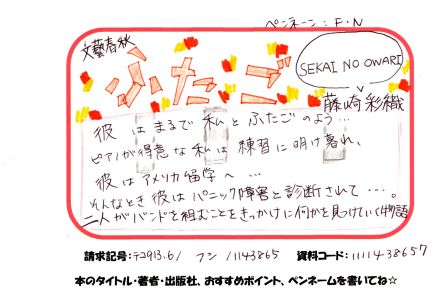 ペンネーン：F・N
文藝春秋
ふたご
SEKAI NO OWARI
藤崎彩織
彼はまるで私とふたごのよう…
ピアノが得意な私は練習に明け暮れ、
彼はアメリカ留学へ…
そんなとき彼はパニック障害と診断されて…。
二人がバンドを組むことをきっかけに何かを見つけていく物語
請求記号：テ2913.6/ フジ /1143865 資料コード：1111438657
本のタイトル・著者・出版社、おすすめポイント、ペンネームを書いてね☆